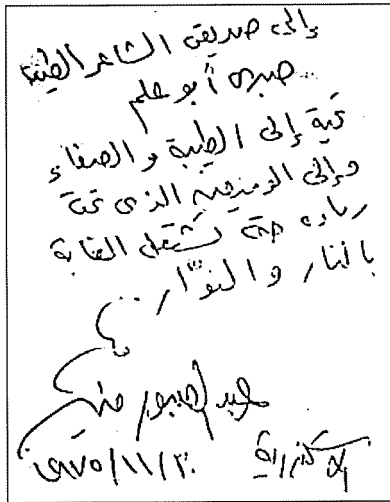 إلى صديقى الشاعر الطيب
صبرى أبو علم
تحية إلى الطيبة و الصفاء
وإلى الوميض الذى تحت
رماده حتى تشتعل الغابة
بالنار و النوّار ..
عبد الصبور منير
الإسكندرية ٣٠/١١/١٩٧٥